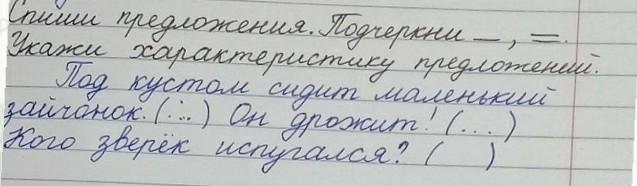 Спиши предложения. Подчеркни _ , =.
Укажи характеристику предложений.
Под кустом сидит маленький
зайчонок. (...) Он дрожит! (...)
Кого зверёк испугался? ( )